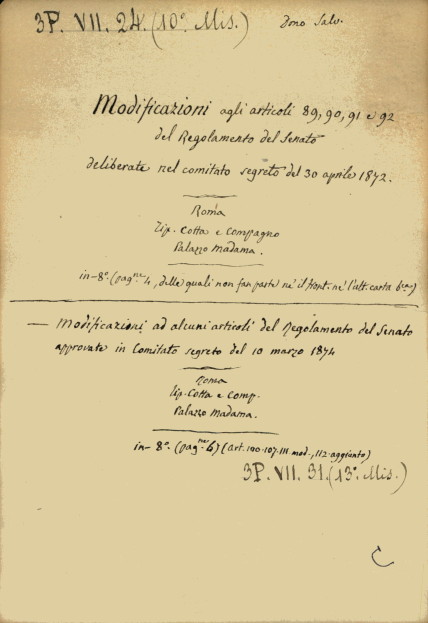 3P. VII. 24. (10° Mis.)
Dono Salv.
Modificazioni agli articoli 89, 90, 91 e 92
del Regolamento del Senato
deliberate nel comitato segreto del 30 aprile 1872.
Roma
Tip. Cotta e Compagno
Palazzo Madama.
in-8°. (pag.ne 4, delle quali non fan parte nè il front. nè l'ult. carta b.ca)
— Modificazioni ad alcuni articoli del Regolamento del Senato
approvate in Comitato segreto del 10 marzo 1874
Roma
Tip. Cotta e Comp.
Palazzo Madama.
in-8°. (pag.ne 6) (art. 100. 107. 111. mod., 112 aggiunto)
3P. VII. 31. (13° Mis.)
C